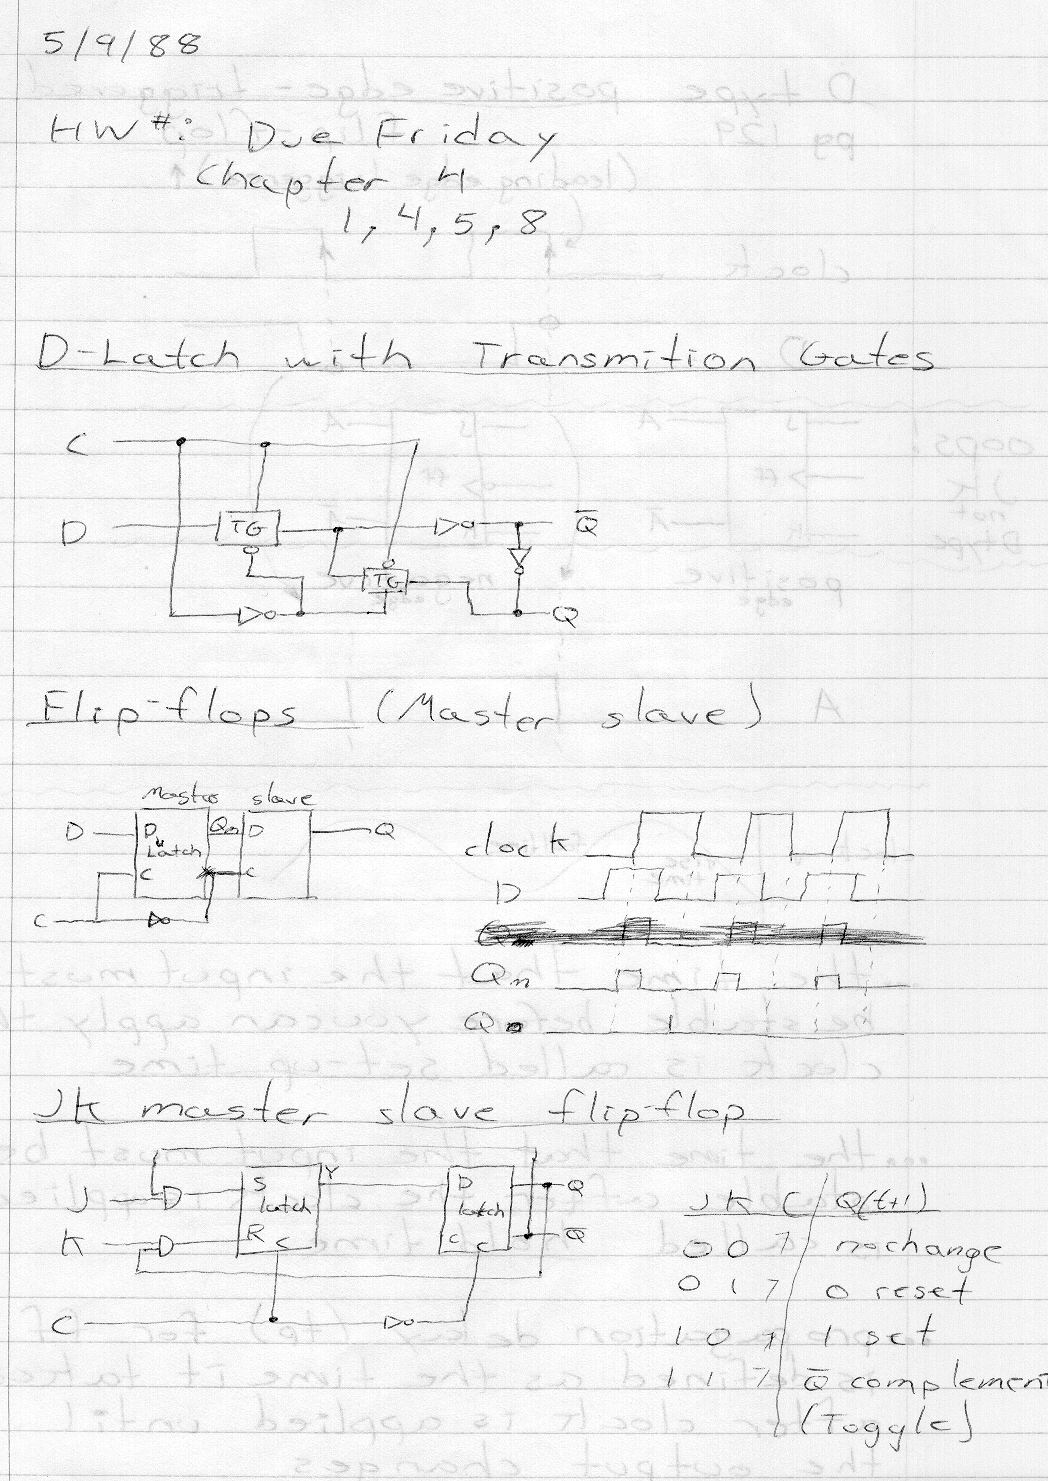 5/9/88
HW #: Due Friday
Chapter 4
1, 4, 5, 8
D-Latch with Transmition Gates
C
D TG Q̅
TG
Q
Flip-flops (Master slave)
Master slave
D D Qn D Q
Latch
C C
C
clock
D
Qn
Q
JK master slave flip-flop
J S Y D Q
latch latch
K R C C C Q̅
C
J K C Q(t+1)
0 0 ↑ no change
0 1 ↑ 0 reset
1 0 ↑ 1 set
1 1 ↑ Q̅ complement
(Toggle)